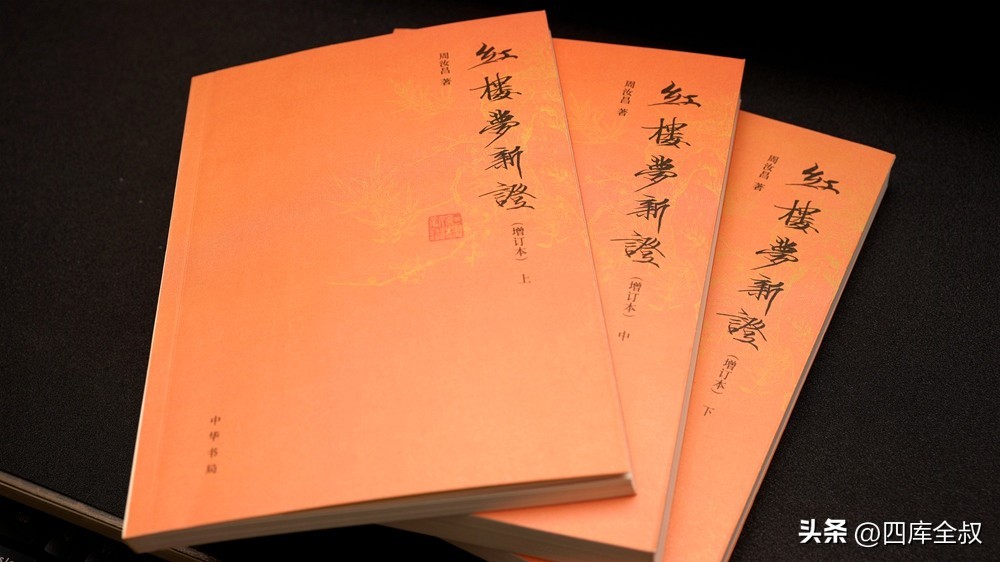 周汝昌 著
紅樓夢新證
（增订本） 上
中华书局
周汝昌 著
紅樓夢新證
（增订本） 中
周汝昌 著
紅樓夢新證
（增订本） 下
头条 @四库全叔